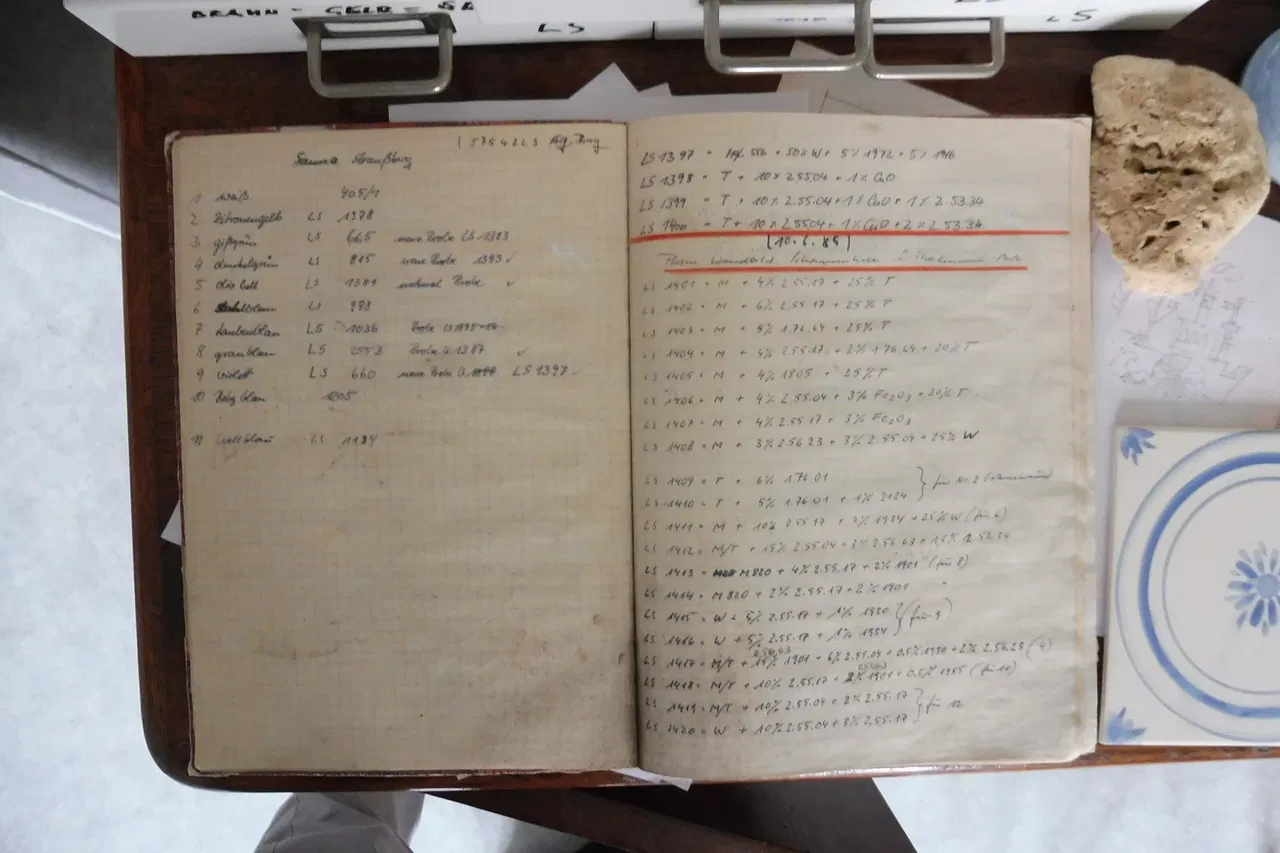 BRAUN = GELB =
LS
LS
15764223
Sauna Straußberg
1 weiß 405/1
2 Zitronengelb LS 1378
3 giftgrün LS 665 neue Probe LS 1383
4 dunkelgrün LS 815 neue Probe 1393 ✓
5 LS 1381 nochmal Probe ✓
6 LS 978
7 taubenblau LS 1036 Probe
8 graublau LS 2552 Probe LS 1387 ✓
9 violett LS 660 neue Probe LS LS 1397 ✓
10 blau 1205
11 LS 1134
LS 1397 = 556 + 50% W + 5% 1972 + 5% 1916
LS 1398 = T + 10% 2.55.04 + 1% CuO
LS 1399 = T + 10% 2.55.04 + 1% CuO + 1% 2.53.34
LS 1400 = T + 10% 2.55.04 + 1% CuO + 2% 2.53.34
(10.6.85)
Wandbild Schwimmhalle
LS 1401 = M + 4% 2.55.17 + 25% T
LS 1402 = M + 6% 2.55.17 + 25% T
LS 1403 = M + 5% 1.76.64 + 25% T
LS 1404 = M + 4% 2.55.17 + 2% 1.76.64 + 20% T
LS 1405 = M + 4% 1805 + 25% T
LS 1406 = M + 4% 2.55.04 + 3% Fe2O3 + 20% T
LS 1407 = M + 4% 2.55.17 + 3% Fe2O3
LS 1408 = M + 3% 2.56.23 + 3% 2.55.04 + 25% W
LS 1409 = T + 6% 1.76.01
LS 1410 = T + 5% 1.76.01 + 1% 2124 } für No. 2
LS 1411 = M + 10% 2.55.17 + 2% 1934 + 25% W (für 6)
LS 1412 = M/T + 15% 2.55.04 + 3% 2.56.63 + 1,5% 2.53.34
LS 1413 = M 820 + 4% 2.55.17 + 2% 1901 (für 8)
LS 1414 = M 820 + 2% 2.55.17 + 2% 1901 "
LS 1415 = W + 5% 2.55.17 + 1% 1950
LS 1416 = W + 5% 2.55.17 + 1% 1954 } (für 9)
LS 1417 = M/T + 1901 + 6% 2.55.04 + 0,5% 1950 + 2% 2.56.23 (4)
LS 1418 = M/T + 10% 2.55.17 + 2% 1901 + 0,5% 1955 (für 10)
LS 1419 = M/T + 10% 2.55.04 + 2% 2.55.17
LS 1420 = W + 10% 2.55.04 + 8% 2.55.17 } für 12